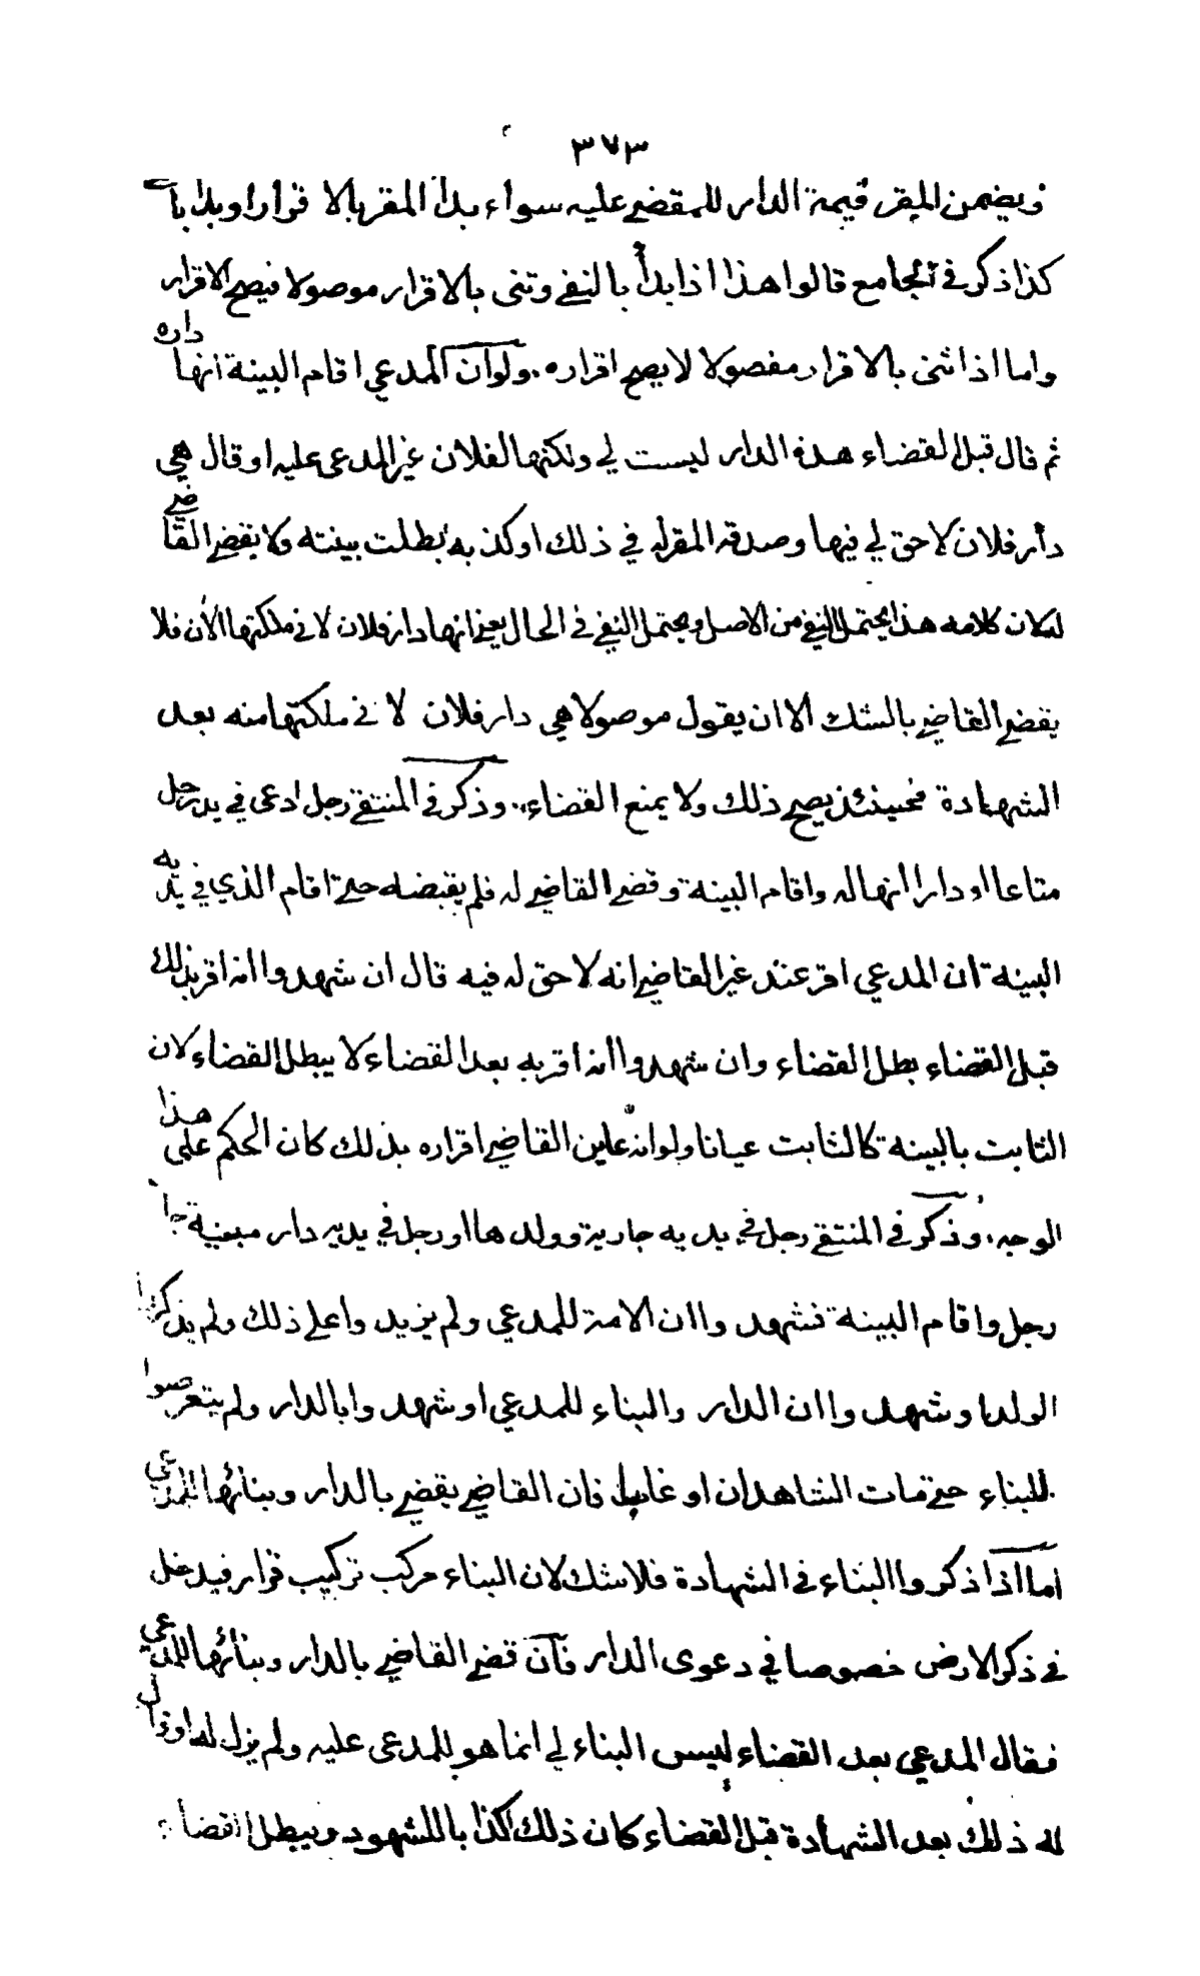 ٣٧٣
ويضمن المقر قيمة الدار للمقضي عليه سواء بدأ المقر بالاقرار او بدا با
كذا ذكر في الجامع قالوا هذا اذا بدأ بالنفي وثنى بالاقرار موصولا فيصح الاقرار
واما اذا ثنى بالاقرار مفصولا لا يصح اقراره ولو ان المدعي اقام البينة انها داره
ثم قال قبل القضاء هذه الدار ليست لي ولكنها لفلان غير المدعى عليه او قال هي
دار فلان لا حق لي فيها وصدقه المقر له في ذلك او كذبه بطلت بينته ولا يقضي القاضي
لمكان كلامه هذا يحتمل النفي من الاصل ويحتمل النفي في الحال يعني انها دار فلان لاني ملكتها الان فلا
يقضي القاضي بالشك الا ان يقول موصولا هي دار فلان لاني ملكتها منه بعد
الشهادة فحينئذ يصح ذلك ولا يمنع القضاء وذكر في المنتقى رجل ادعى في يد رجل
متاعا او دارا انها له واقام البينة وقضى القاضي له فلم يقبضه حتى اقام الذي في يديه
البينة ان المدعي اقر عند غير القاضي انه لا حق له فيه قال ان شهدوا انه اقر بذلك
قبل القضاء بطل القضاء وان شهدوا انه اقر به بعد القضاء لا يبطل القضاء لان
الثابت بالبينة كالثابت عيانا ولو انه عاين القاضي اقراره بذلك كان الحكم على هذا
الوجه وذكر في المنتقى رجل في يديه جارية وولدها او رجل في يديه دار مبنية جا
رجل واقام البينة فشهدوا ان الامة للمدعي ولم يزيدوا على ذلك ولم يذكروا
الولد او شهدوا ان الدار والبناء للمدعي او شهدوا بالدار ولم يتعرضوا
للبناء حتى مات الشاهدان او غابا فان القاضي يقضي بالدار وبنائها للمدعي
اما اذا ذكروا البناء في الشهادة فلا شك لان البناء مركب تركيب قرار فيدخل
في ذكر الارض خصوصا في دعوى الدار فان قضى القاضي بالدار وبنائها للمدعي
فقال المدعي بعد القضاء ليس البناء لي انما هو للمدعى عليه ولم يزل له او قال
له ذلك بعد الشهادة قبل القضاء كان ذلك اكذابا للشهود ويبطل القضاء